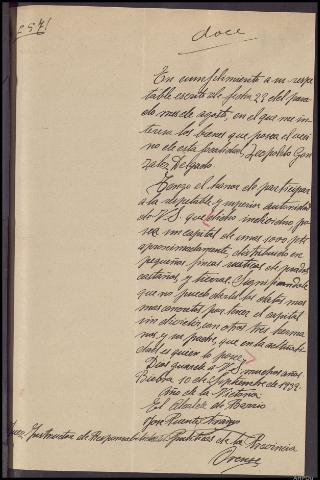 257
doce
En cumplimiento a su respe-
table escrito de fecha 29 del pasa-
do mes de agosto, en el que me in-
teresa los bienes que posea el veci-
no de esta localidad, Leopoldo Gon-
zalez Delgado.
Tengo el honor de participar
a la respetable y superior autoridad
de V.S. que dicho individuo po-
see un capital de unas 1000 pts
aproximadamente, distribuido en
pequeñas fincas rusticas de prados
castaños, y tierras. Significandole
que no puedo darle los datos mas
mas concretos por tener el capital
indiviso, con otros tres herma-
nos, y su padre, que en la actuali-
dad es quien lo posee.
Dios guarde a V.S. muchos años.
10 de Septiembre de 1939.
Año de la Victoria.
El Alcalde de Barrio
José Puente
Juez Instructor de Responsabilidades Politicas de la Provincia
Orense